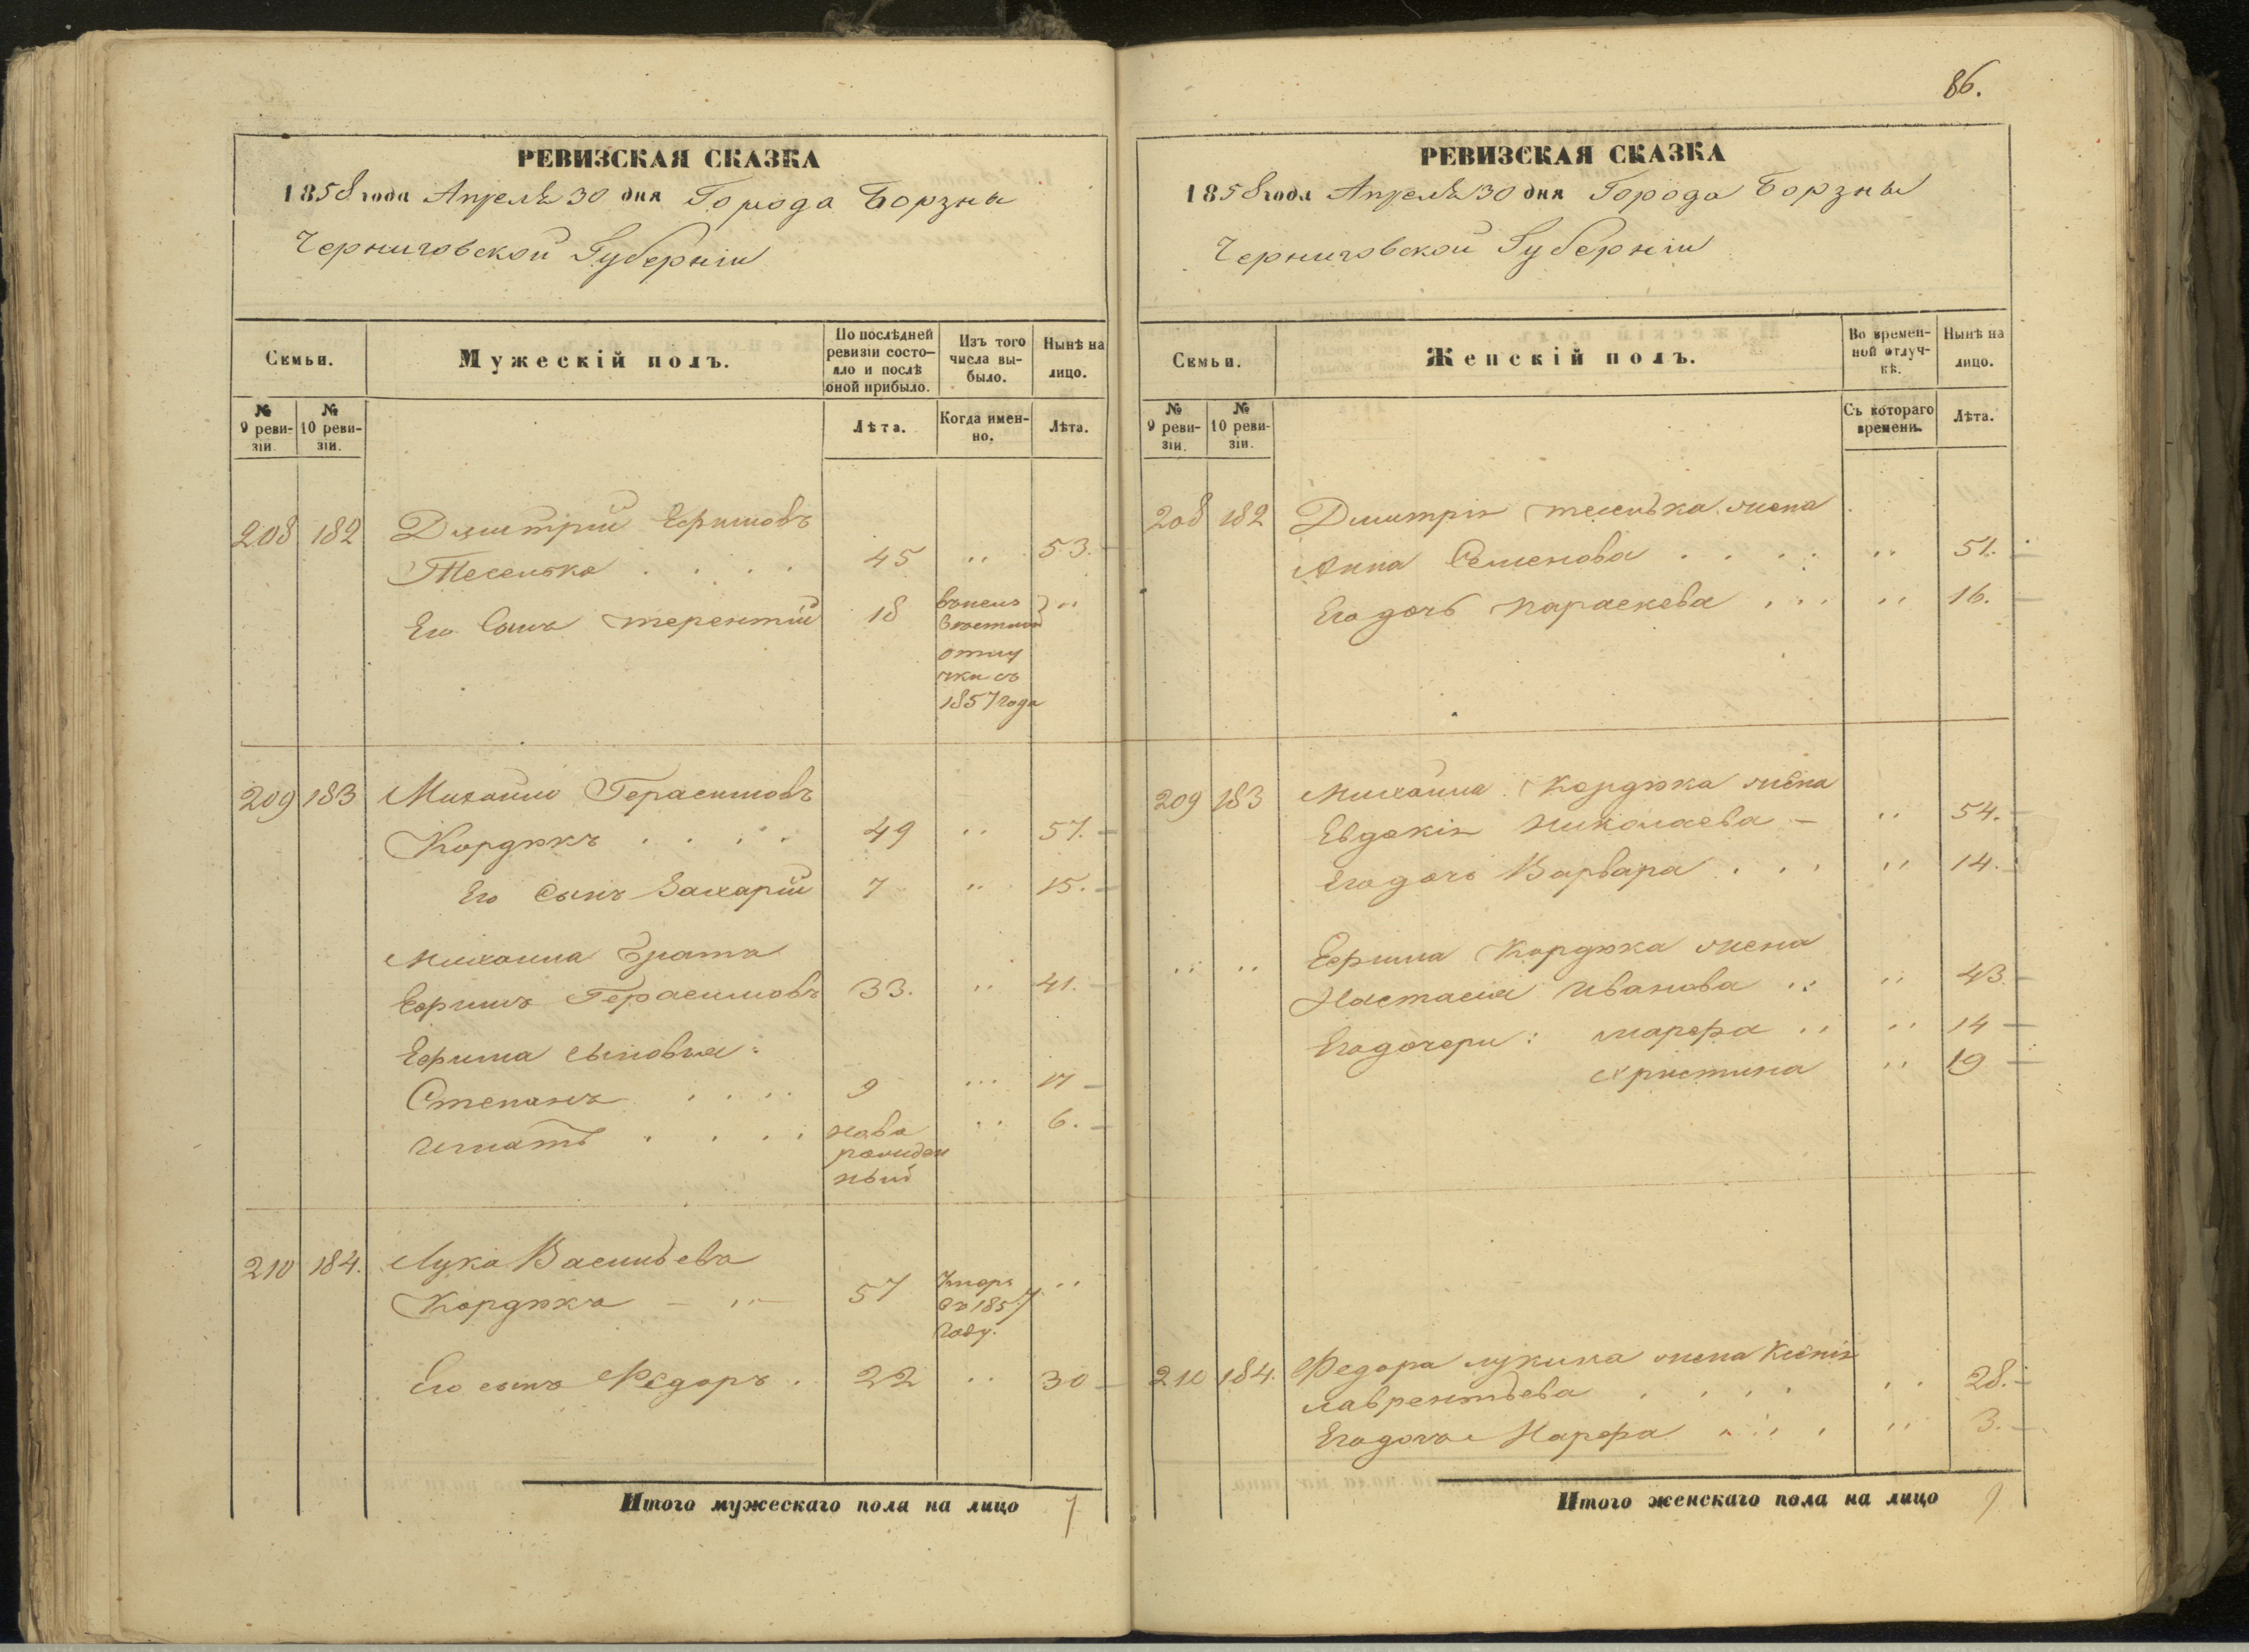 РЕВИЗСКАЯ СКАЗКА
1858 года Апреля 30 дня Города Борзны
Черниговской Губерніи
Семьи.
Мужескій полъ.
По послѣдней ревизіи состояло и послѣ оной прибыло.
Изъ того числа выбыло.
Нынѣ на лицо.
№ 9 ревизіи.
№ 10 ревизіи.
Лѣта.
Когда именно.
Лѣта.
208 182 Дмитрій Ефимовъ
45 .. 53.
Его Сынъ терентій 18
отлу
чки съ
1857 года
209 183 Михайло Герасимовъ
Кордюкъ . . . . 49 .. 57.
Его Сынъ Захарій 7 .. 15.
Михаила Братъ
Ефимъ Герасимовъ 33. .. 41.
Ефима сыновья:
Степанъ . . . . 9 ... 17
Игнатъ . . . . ново .. 6.
рожден
ный
210 184. Лука Васильевъ
Кордюкъ 57 Умеръ ..
въ 1857
году.
Его сынъ Федоръ . 22 .. 30
Итого мужескаго пола на лицо 7
86.
РЕВИЗСКАЯ СКАЗКА
1858 года Апреля 30 дня Города Борзны
Черниговской Губерніи
Семьи.
Женскій полъ.
Во временной отлучкѣ.
Нынѣ на лицо.
№ 9 ревизіи.
№ 10 ревизіи.
Съ котораго времени.
Лѣта.
208 182 Дмитрія жена
Анна Семенова . . . . .. 51.
Его дочь параскева . . . .. 16.
209 183 Михаила Кордюка жена
Евдокія Николаева – .. 54.
Его дочь Варвара . . . .. 14.
.. .. Ефима Кордюка жена
Настасія Иванова .. .. 43.
Его дочери: марфа .. .. 14
христина .. 19
210 184. Федора лукина жена Ксенія
лаврентьева . . . . .. 28.
Его дочь Марфа . . . . .. 3.
Итого женскаго пола на лицо 9